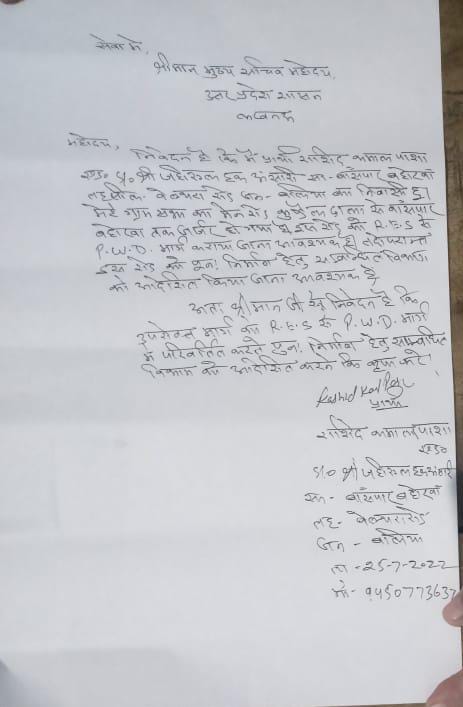 सेवा में,
श्रीमान मुख्य सचिव महोदय,
उत्तर प्रदेश शासन
लखनऊ
महोदय,
निवेदन है कि मैं प्रार्थी राशिद कमाल पाशा
एड० S/o श्री जहीरुल हक अंसारी ग्रा- बाँसपार बहोरवा
तहसील बेल्थरा रोड जन- बलिया का निवासी हूँ।
मेरे ग्राम सभा का मेन रोड ढाला से बाँसपार
बहोरवा तक जर्जर हो गया है इस रोड को R.E.S से
P.W.D. मार्ग कराया जाना आवश्यक है। तदोपरान्त
इस रोड को पुनः निर्माण हेतु सम्बन्धित विभाग
को आदेसित किया जाना आवश्यक है
अतः श्रीमान जी से निवेदन है कि
उपरोक्त मार्ग को R.E.S से P.W.D. मार्ग
में परिवर्तित करते पुनः निर्माण हेतु सम्बन्धित
विभाग को आदेसित करने कि कृपा करें।
प्रार्थी
राशिद कमाल पाशा
एड०
S/o श्री जहीरुल हक अंसारी
ग्रा- बाँसपार बहोरवाँ
तह- बेल्थरा रोड
जन- बलिया
ता- 25-7-2022
मो- 9450773637